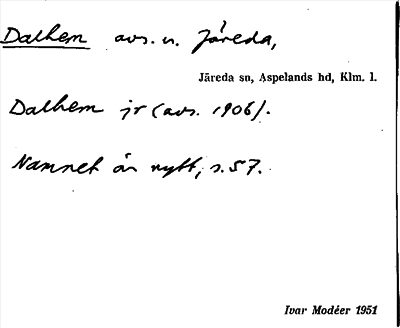 Dalhem avs. u. Järeda,
Järeda sn, Aspelands hd, Klm. l.
Dalhem jr (avs. 1906).
Namnet är nytt, s. 57.
Ivar Modéer 1951